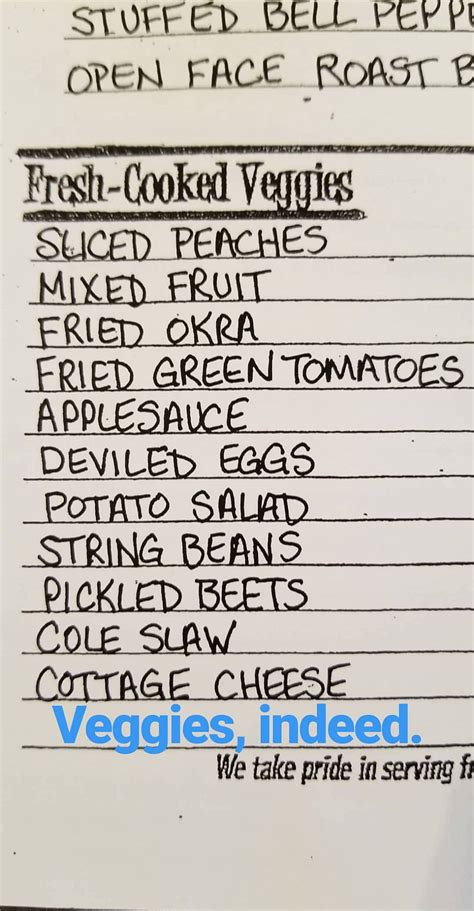 STUFFED BELL PEPPE
OPEN FACE ROAST B
Fresh-Cooked Veggies
SLICED PEACHES
MIXED FRUIT
FRIED OKRA
FRIED GREEN TOMATOES
APPLESAUCE
DEVILED EGGS
POTATO SALAD
STRING BEANS
PICKLED BEETS
COLE SLAW
COTTAGE CHEESE
Veggies, indeed.
We take pride in serving fr